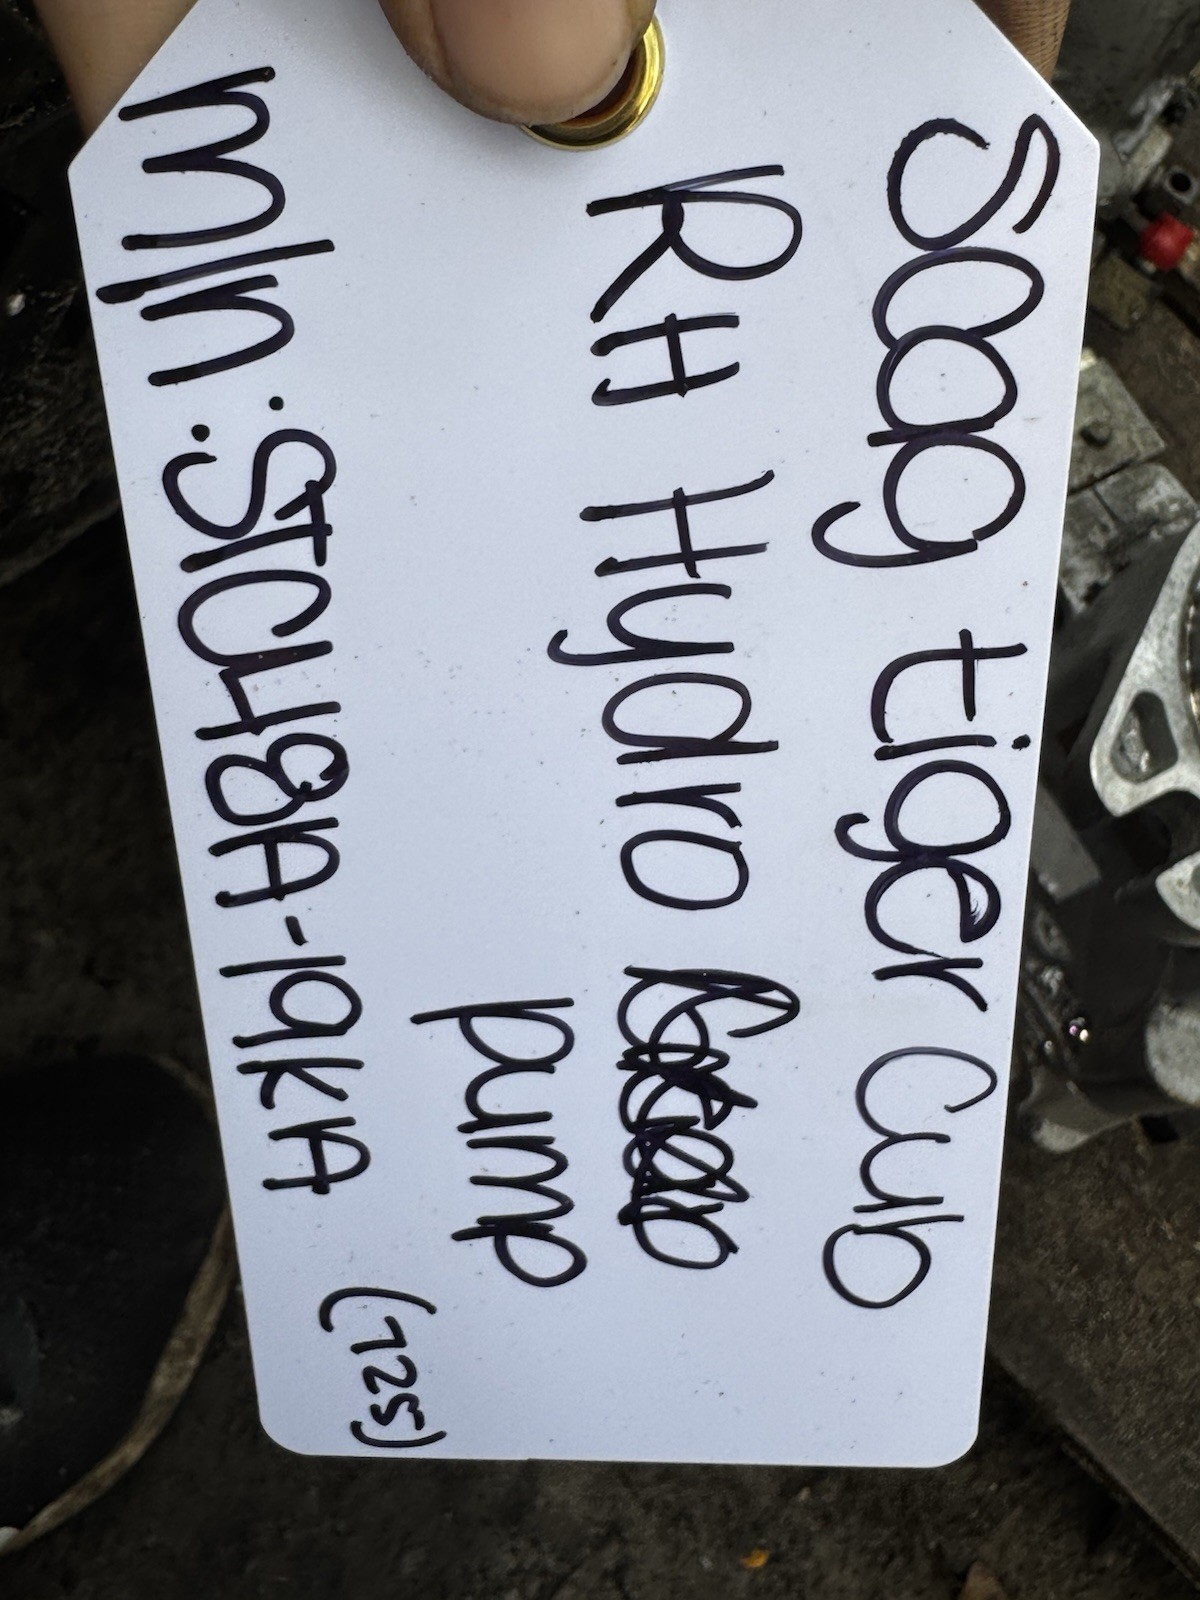 Scag tiger Cub
RH Hydro
pump
m/n: STC48A-19KA
(725)